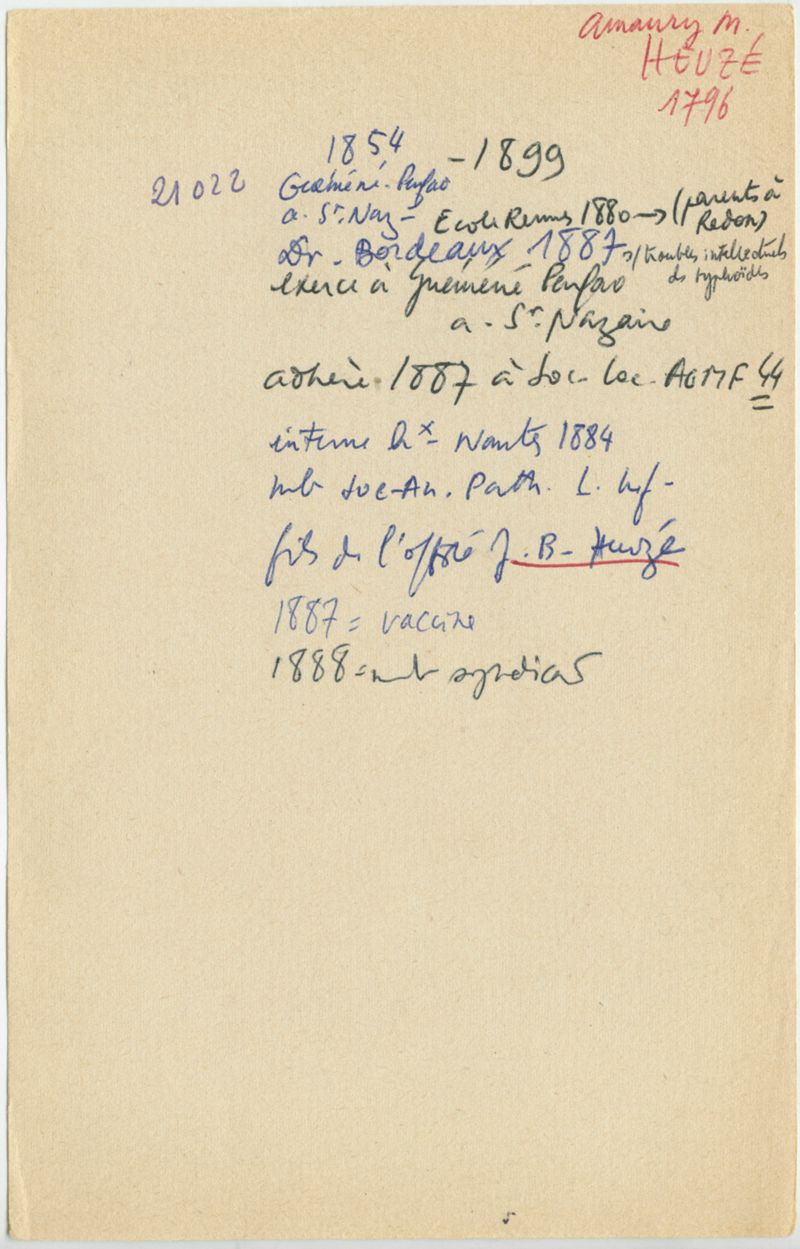 Amaury M.
HEUZÉ
1796
1854 - 1899
21022
Guéméné-Penfao
a. St. Naz- Ecole Rennes 1880 → (parents à Redon)
Dr. Bordeaux 1887 s/troubles intellectuels ds typhoïdes
exerce à Guéméné Penfao
a. St. Nazaire
adhère 1887 à Soc. Loc. AGMF 44
interne hx- Nantes 1884
mb Soc-An. Path. L. Inf-
fils de l'offsté J.B- Heuzé
1887 = vaccine
1888 = mb syndicat